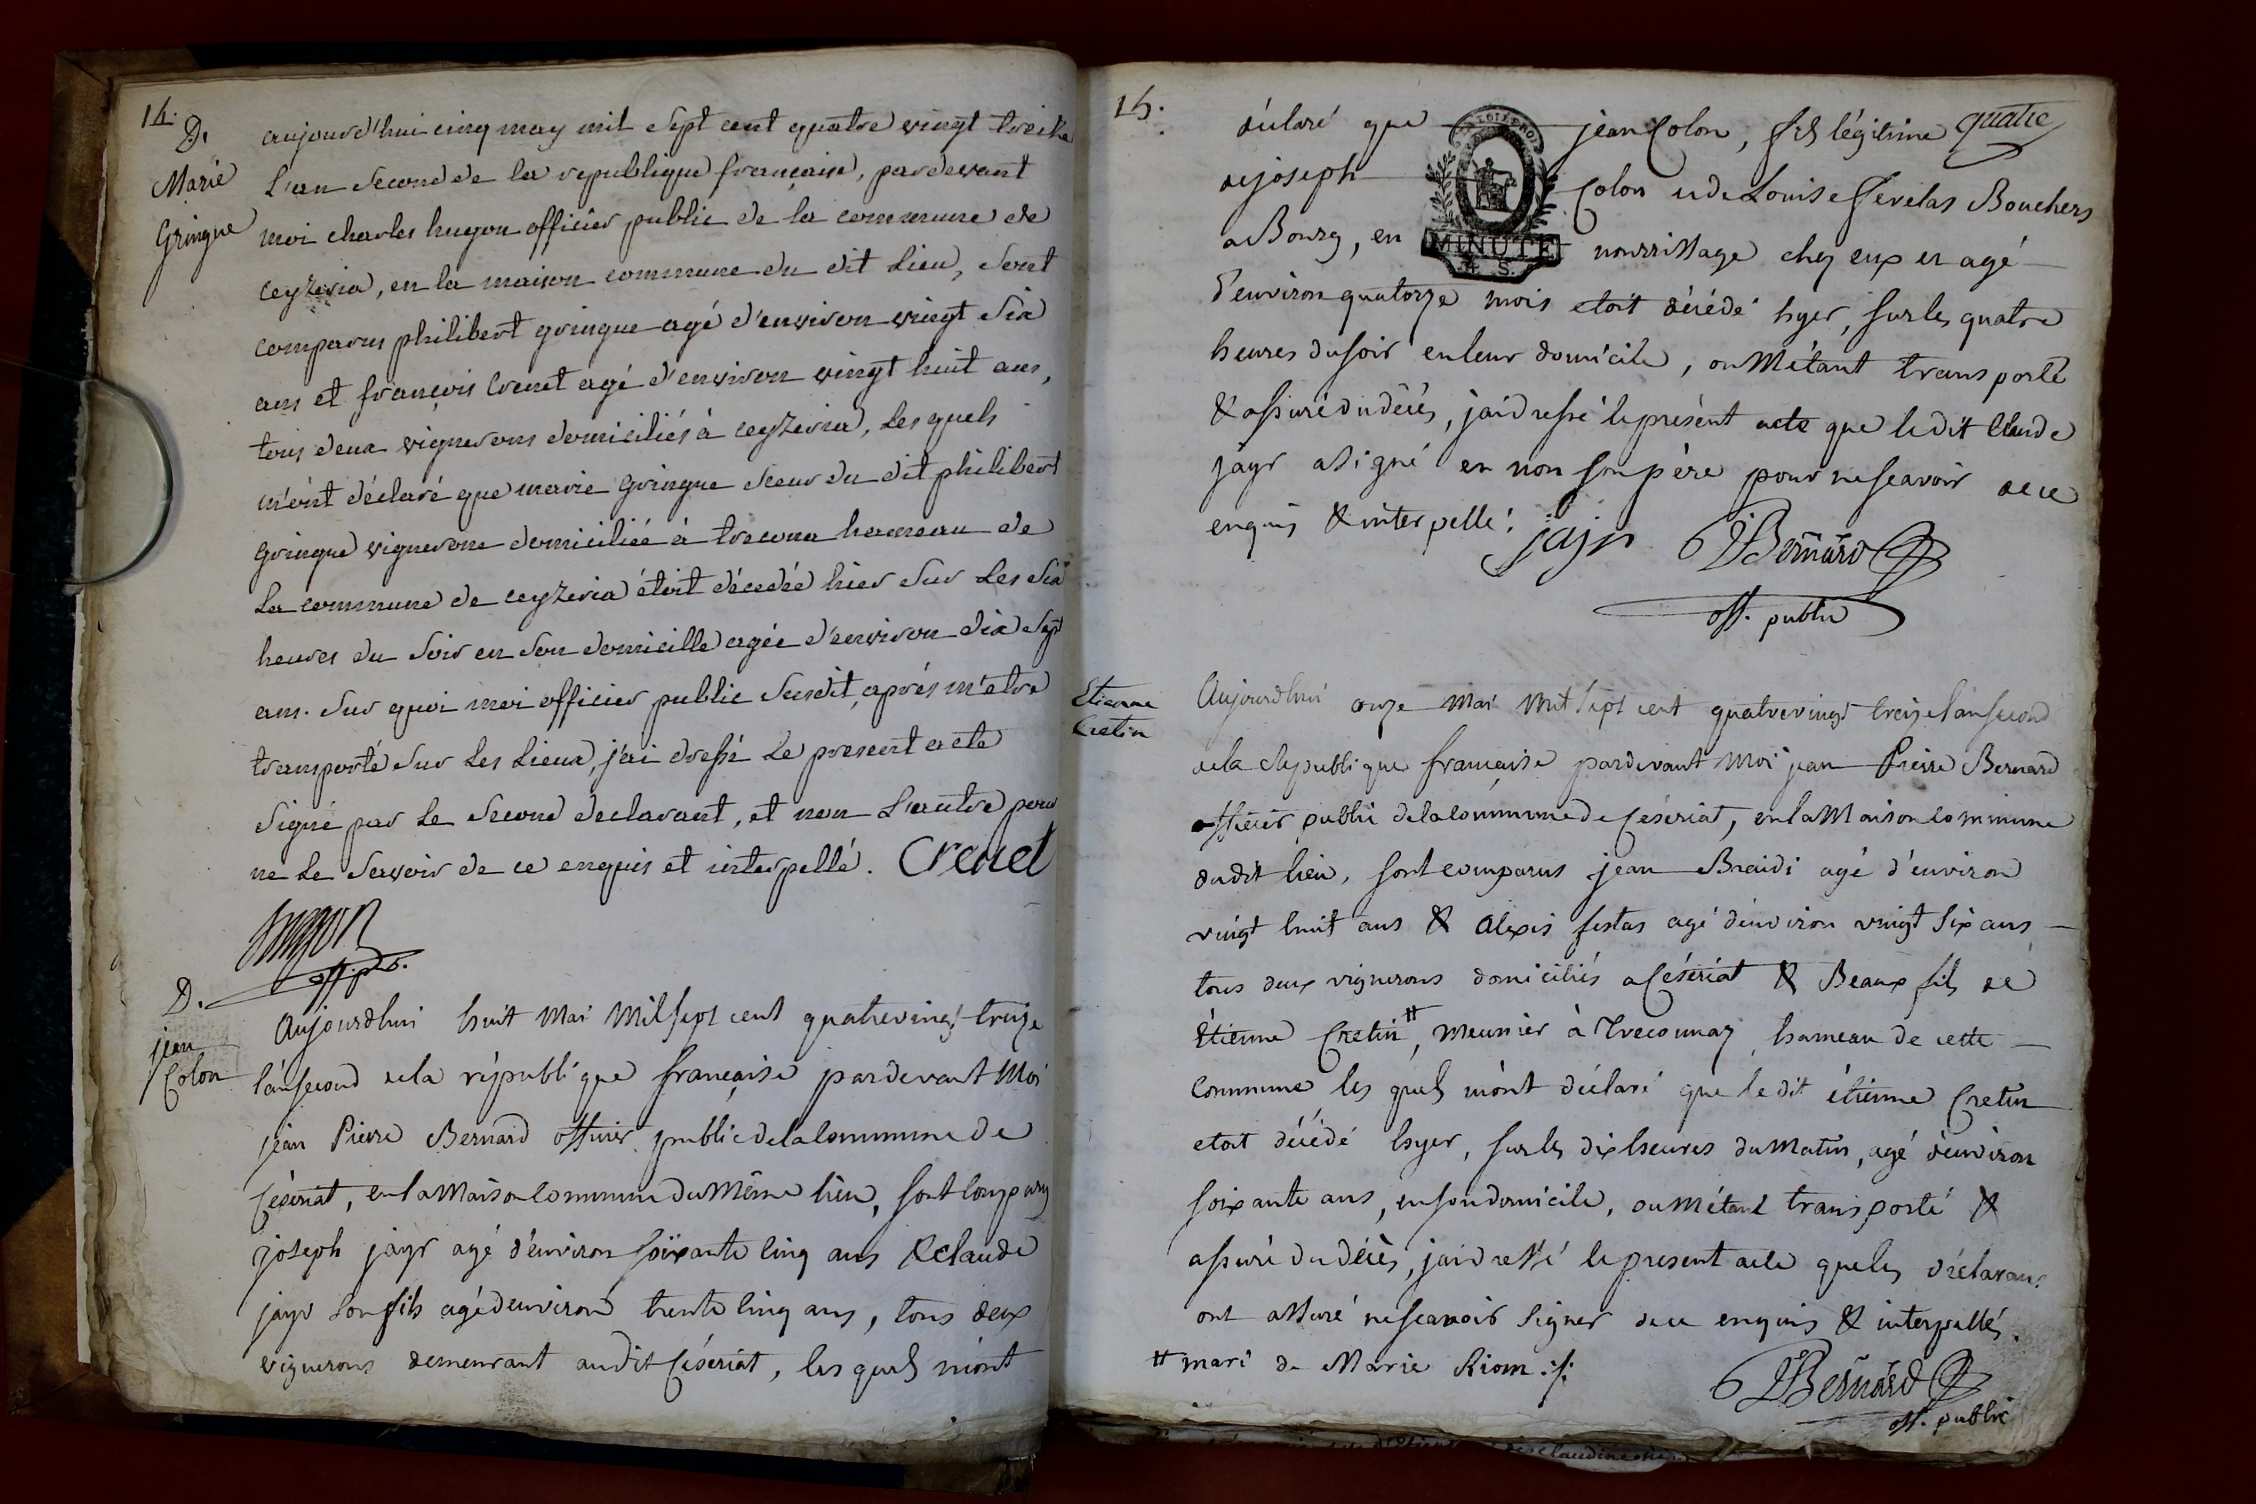 14.
D.
Marie
Gringue
aujourd'hui cinq may mil sept cent quatre vingt treize
L'an second de la republique française, pardevant
moi charles hugon officier public de la commune de
ceyzeria, en la maison commune du dit Lieu, sont
comparus philibert gringue agé d'environ vingt six
ans et françois Crenet agé d'environ vingt huit ans,
tous deux vignerons domiciliés à ceyzeria, Les quels
m'ont déclaré que marie gringue sœur du dit philibert
gringue vignerone domiciliée à trecona hameau de
La commune de ceyzeria étoit décedée hier sur Les six
heures du soir en son domicille agée d'environ dix sept
ans. Sur quoi moi officier public susdit, après m'etre
transporté sur Les Lieux, j'ai dressé Le present acte
signé par Le second declarant, et non L'autre pour
ne Le savoir de ce enquis et interpellé. Crenet
hugon
off. p.
D.
jean
Colon
Aujourdhui huit Mai Mil sept cent quatrevingt treize
l'an second de la république française pardevant Moi
jean Pierre Bernard officier public de la commune de
Céseriat, en la Maison commune du Même lieu, sont comparus
joseph jayr agé d'environ soixante cinq ans & claude
jayr son fils agé d'environ trente cinq ans, tous deux
vignerons demeurant audit Céseriat, les quels m'ont
15.
quatre
déclaré que jean Colon, fils légitime
de joseph Colon & de Louise Bouchers
a Bourg, en nourrissage chez eux & agé
d'environ quatorze mois etoit décédé hyer, sur les quatre
heures du soir en leur domicile, ou M'étant transporté
& assuré du décés, j'ai dressé le présent acte que le dit Claude
jayr a signé & non son père pour ne sçavoir de ce
enquis & interpellé.
MINUTE
4 S.
jajr JPBernard
off. public
Etienne
Cretin
Aujourdhui onze Mai Mil sept cent quatrevingt treize l'an second
de la République française pardevant Moi jean Pierre Bernard
officier public de la commune de Céseriat, en la Maison commune
dudit lieu, sont comparus jean Braidi agé d'environ
vingt huit ans & Alexis festas agé d'environ vingt six ans
tous deux vignerons domiciliés a Céseriat & Beaux fils de
Etienne Cretin #, Meunier à Trecounaz hameau de cette
Commune les quels m'ont déclaré que le dit étienne Cretin
etoit décédé hyer, sur les dix heures du Matin, agé d'environ
soixante ans, en son domicile, ou M'étant transporté &
assuré du décès, j'ai dressé le present acte que les déclarans
ont assuré ne sçavoir signer de ce enquis & interpellés.
# mari de Marie Riom ./.
JPBernard
off. public